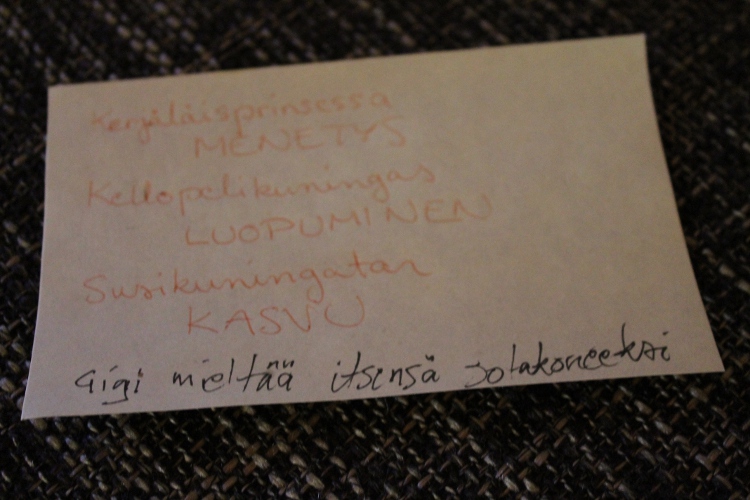 Kerjäläisprinsessa
MENETYS
Kellopelikuningas
LUOPUMINEN
Susikuningatar
KASVU
Gigi mieltää itsensä sotakoneeksi